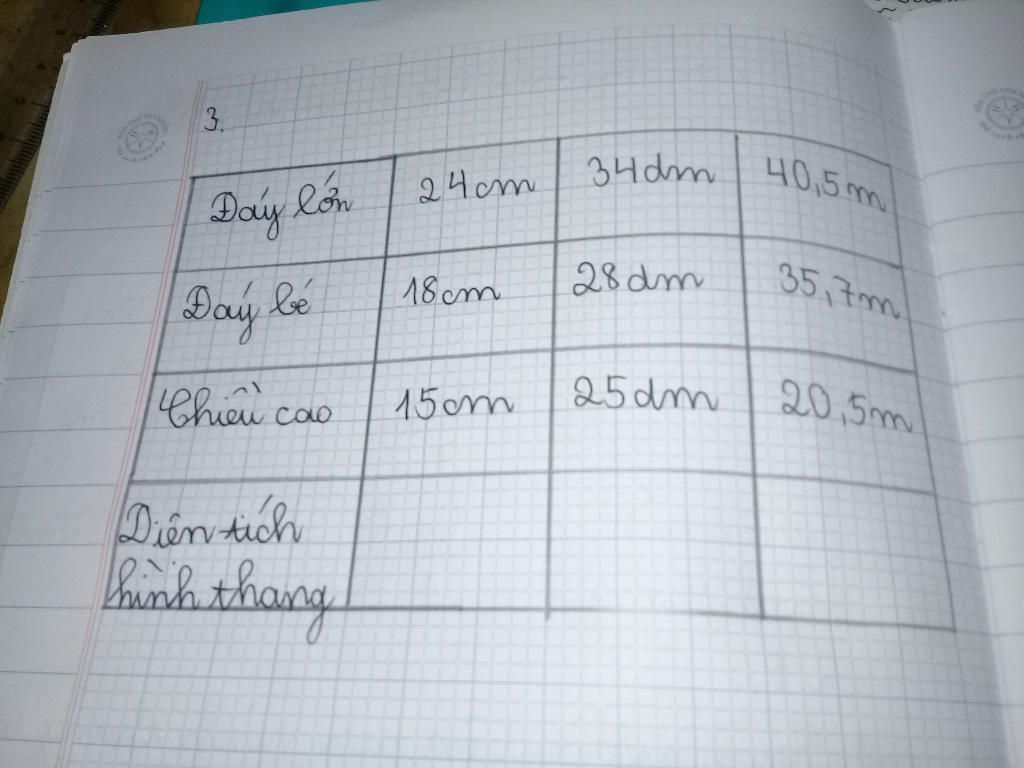 3.
Đáy lớn 24cm 34dm 40,5m
Đáy bé 18cm 28dm 35,7m
Chiều cao 15cm 25dm 20,5m
Diện tích
hình thang